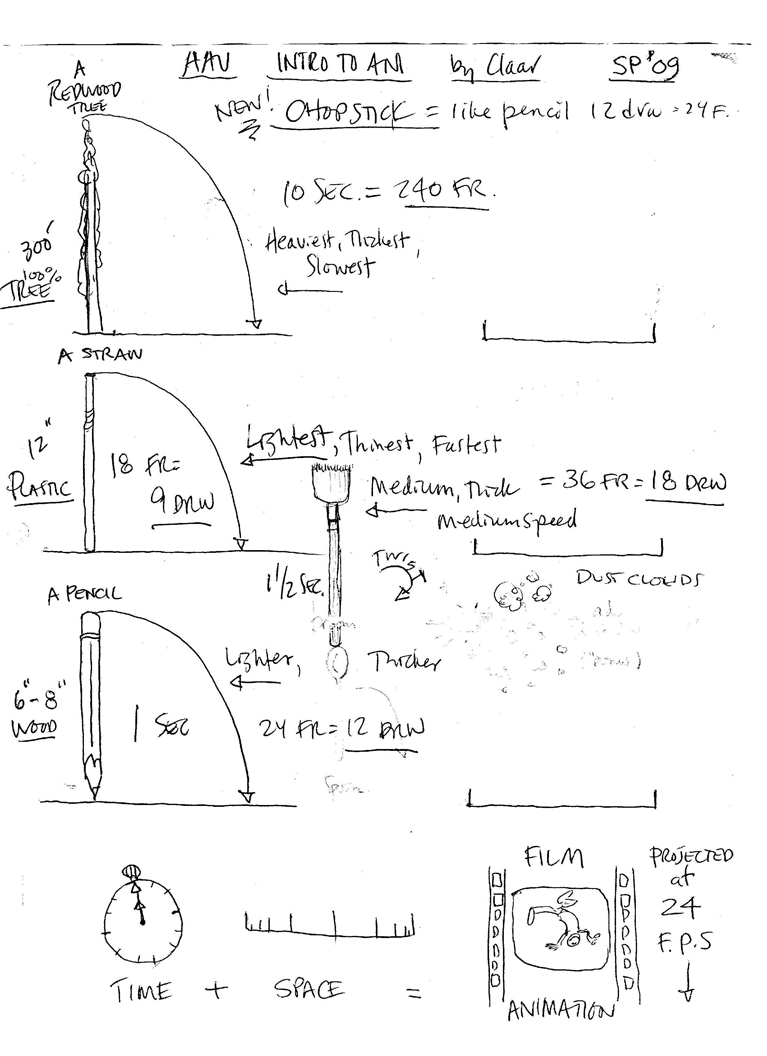 AAU INTRO TO ANI by Claar SP'09
A
REDWOOD
TREE
NEW! CHOPSTICK = like pencil 12 drw = 24 F.
10 SEC. = 240 FR.
Heaviest, Thickest,
Slowest
300'
100%
TREE
A STRAW
12"
PLASTIC
18 FR =
9 DRW
Lightest, Thinest, Fastest
Medium, Thick = 36 FR = 18 DRW
Medium Speed
1 1/2 SEC.
TWIST
DUST CLOUDS
at
(bonus)
A PENCIL
6"-8"
WOOD
1 SEC
Lighter, Thicker
24 FR = 12 DRW
Spoon
FILM
PROJECTED
at
24
F.P.S
TIME + SPACE =
ANIMATION